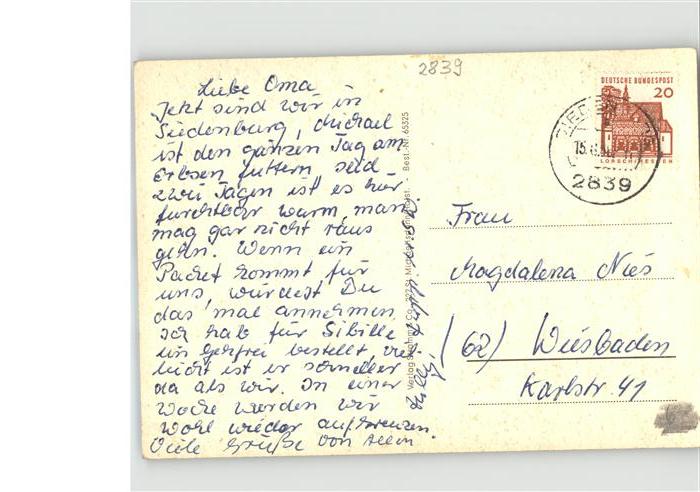 2839
Liebe Oma
Jetzt sind wir in
Siedenburg, Michael
ist den ganzen Tag am
Erbsen futtern, seid
zwei Tagen ist es hier
furchtbar warm, man
mag gar nicht raus
gehn. Wenn ein
Packet kommt für
uns, würdest Du
das mal annehmen
ich hab für Sibille
ein bestellt, viel
leicht ist er schneller
da als wir. In einer
Woche werden wir
wohl wieder aufkreuzen
Viele Grüße von allen
Verlag Co.
Best.-Nr. 65325
DEUTSCHE BUNDESPOST
20
LORSCH/HESSEN
2839
Frau
Magdalena Nies
(62) Wiesbaden
Karlstr. 41